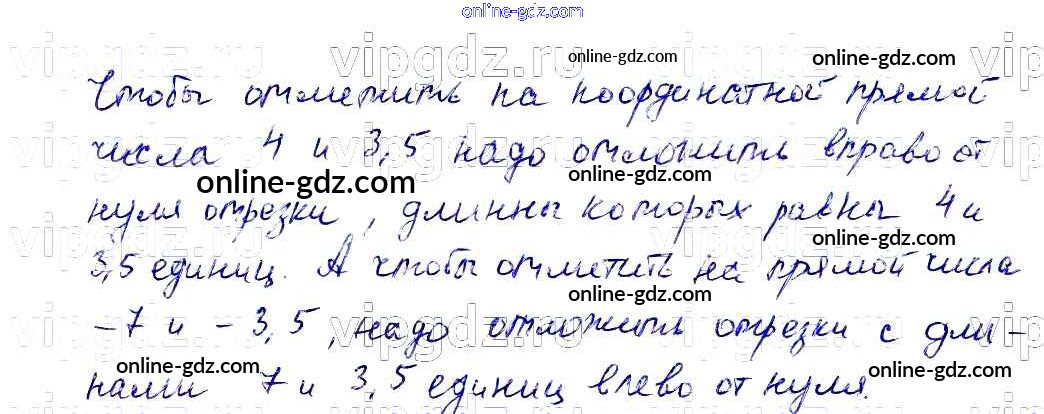 online-gdz.com
vipgdz.ru vipgdz.ru online-gdz.com vipgdz online-gdz.com vip
Чтобы отметить на координатной прямой
online-gdz.com
числа 4 и 3,5 надо отложить вправо от
online-gdz.com online-gdz.com
нуля отрезки, длинны которых равны 4 и
vipgdz online-gdz.com
3,5 единиц. А чтобы отметить на прямой числа
online-gdz.com
-7 и -3,5, надо отложить отрезки с дли-
online-gdz.com online-gdz.com online-gdz.com
нами 7 и 3,5 единиц влево от нуля.